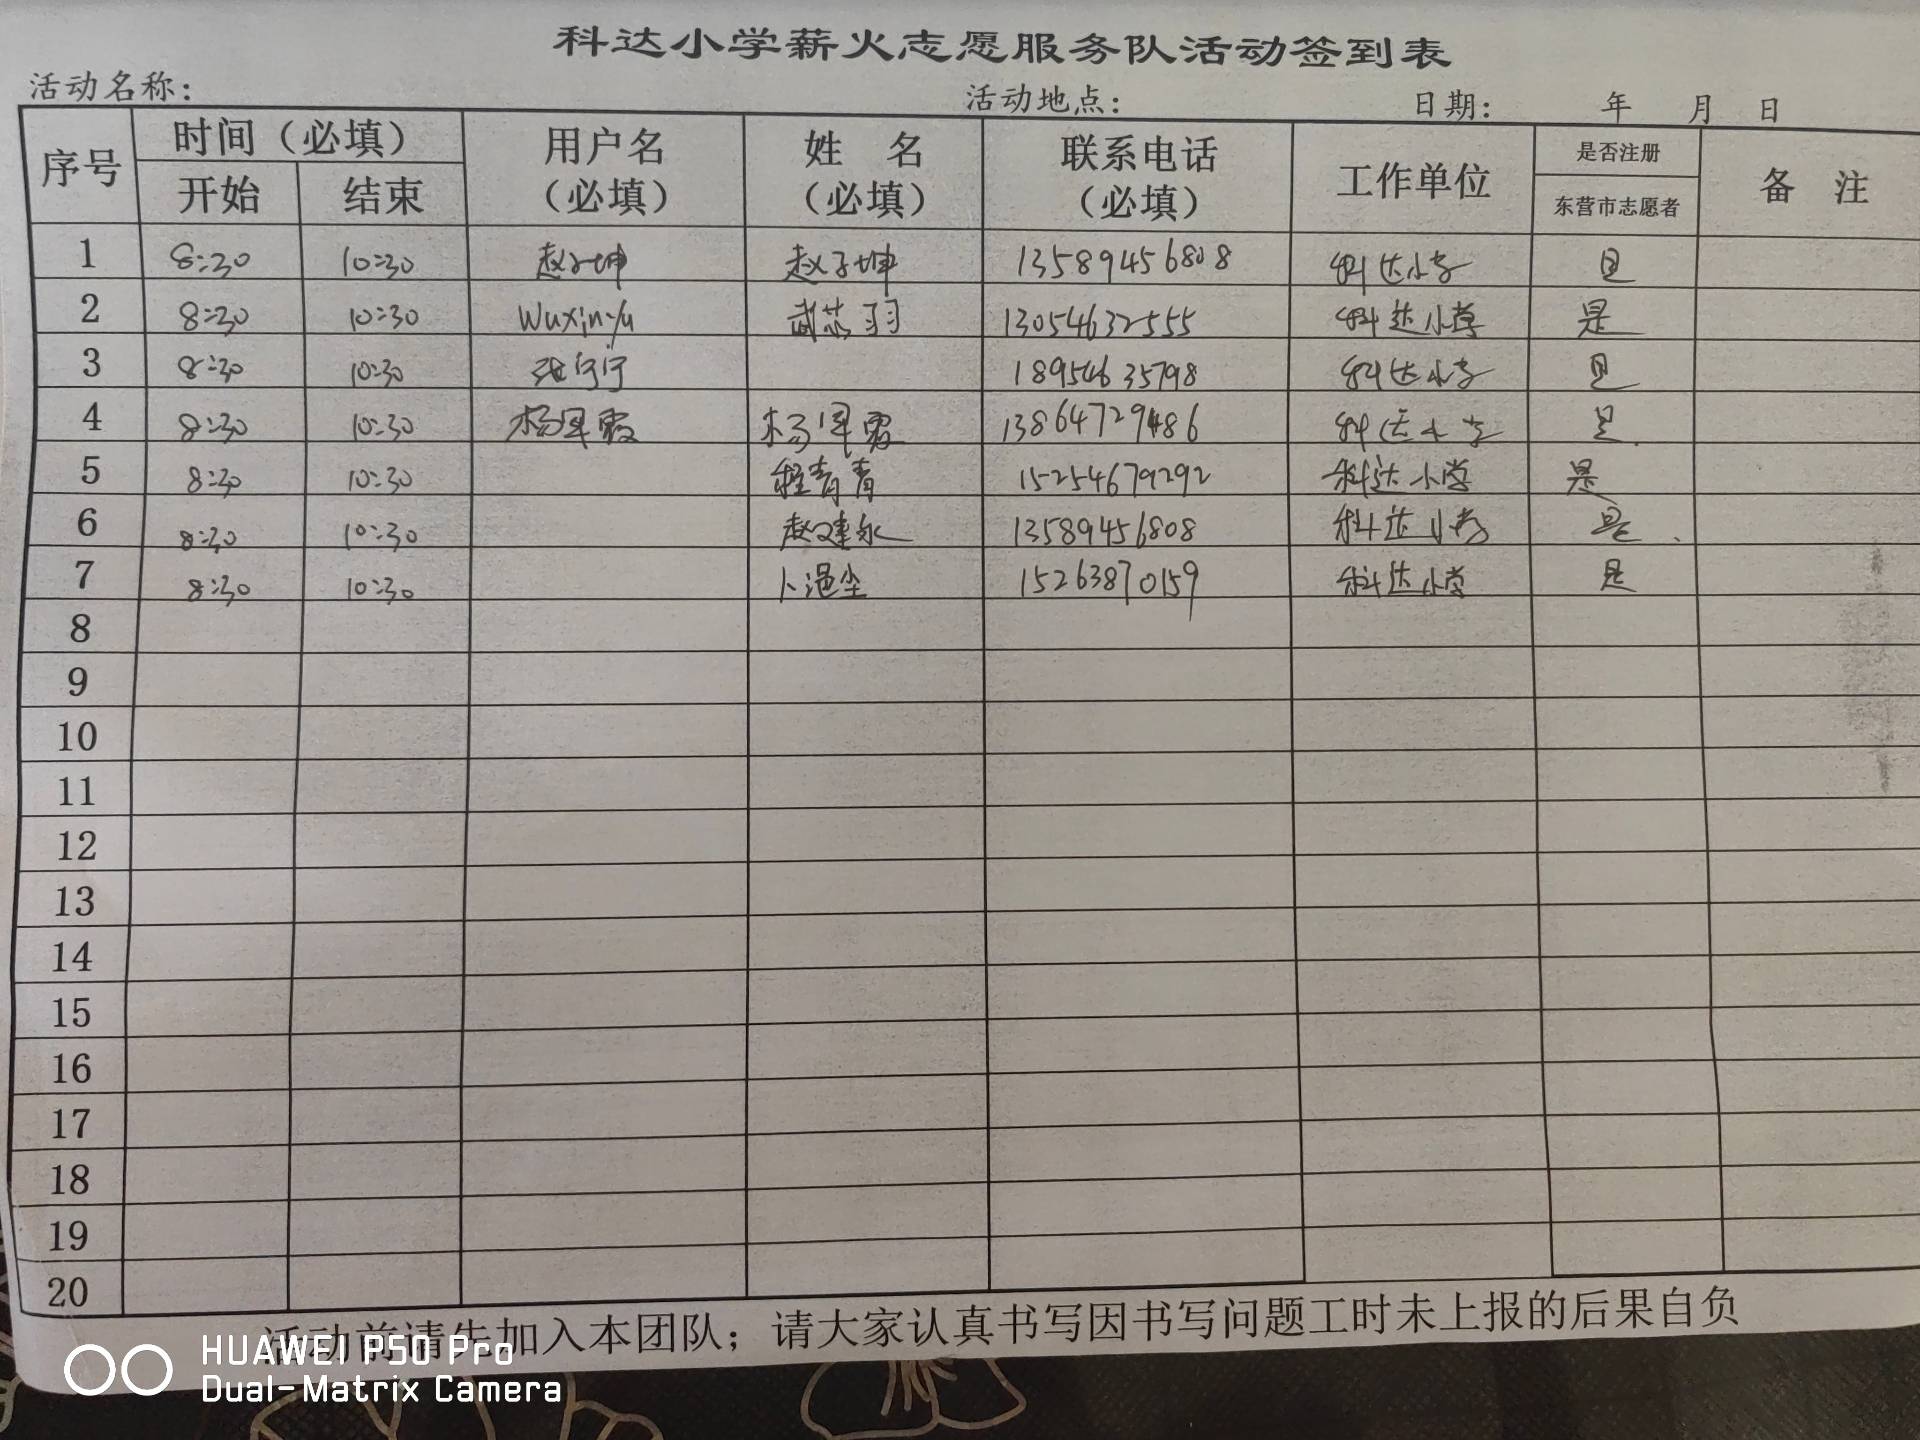 科达小学薪火志愿服务队活动签到表
活动名称： 活动地点： 日期： 年 月 日
序号 时间（必填） 用户名（必填） 姓 名（必填） 联系电话（必填） 工作单位 是否注册 备 注
开始 结束 东营市志愿者
1 8:30 10:30 赵子坤 赵子坤 13589456808 科达小学 是
2 8:30 10:30 Wuxinyu 武芯羽 13054632555 科达小学 是
3 8:30 10:30 张宁宁 18954635798 科达小学 是
4 8:30 10:30 杨军霞 杨军霞 13864729486 科达小学 是
5 8:30 10:30 程青青 15254679292 科达小学 是
6 8:30 10:30 赵建永 13589456808 科达小学 是
7 8:30 10:30 卜 15263870159 科达小学 是
8
9
10
11
12
13
14
15
16
17
18
19
20
活动前请先加入本团队；请大家认真书写因书写问题工时未上报的后果自负
HUAWEI P50 Pro
Dual-Matrix Camera